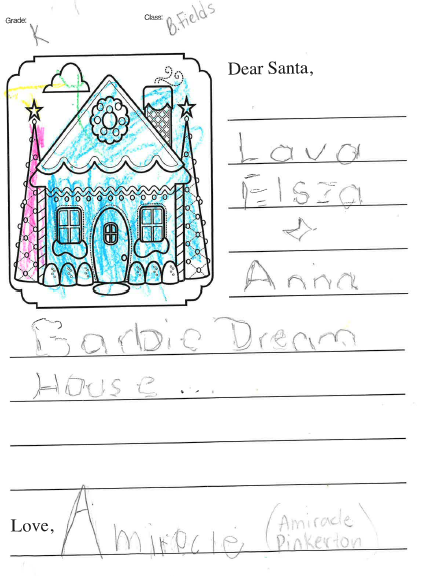 Grade: K
Class: B.Fields
Dear Santa,
Lava
Elsza
+
Anna
Barbie Dream
House ...
Love, Amiracle (Amiracle Pinkerton)